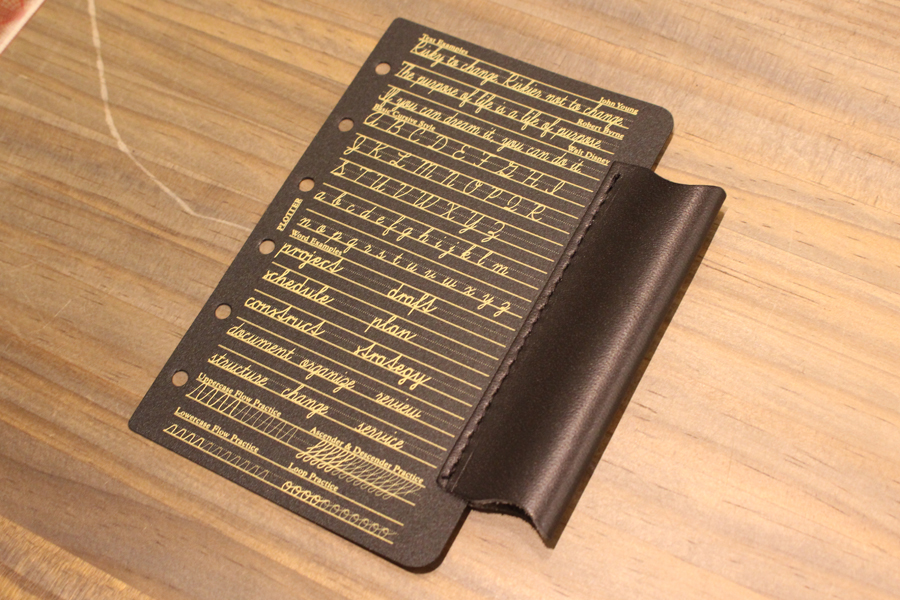 Text Examples
Risky to change. Riskier not to change.
John Young
The purpose of life is a life of purpose.
Robert Byrne
If you can dream it, you can do it.
Walt Disney
Cursive Style
A B C D E F G H I
J K L M N O P Q R
S T U V W X Y Z
a b c d e f g h i j k l m
n o p q r s t u v w x y z
PLOTTER
Word Examples
projects
schedule drafts
constructs plan
document organize strategy
structure change review
service
Uppercase Flow Practice
Ascender & Descender Practice
Lowercase Flow Practice
Loop Practice